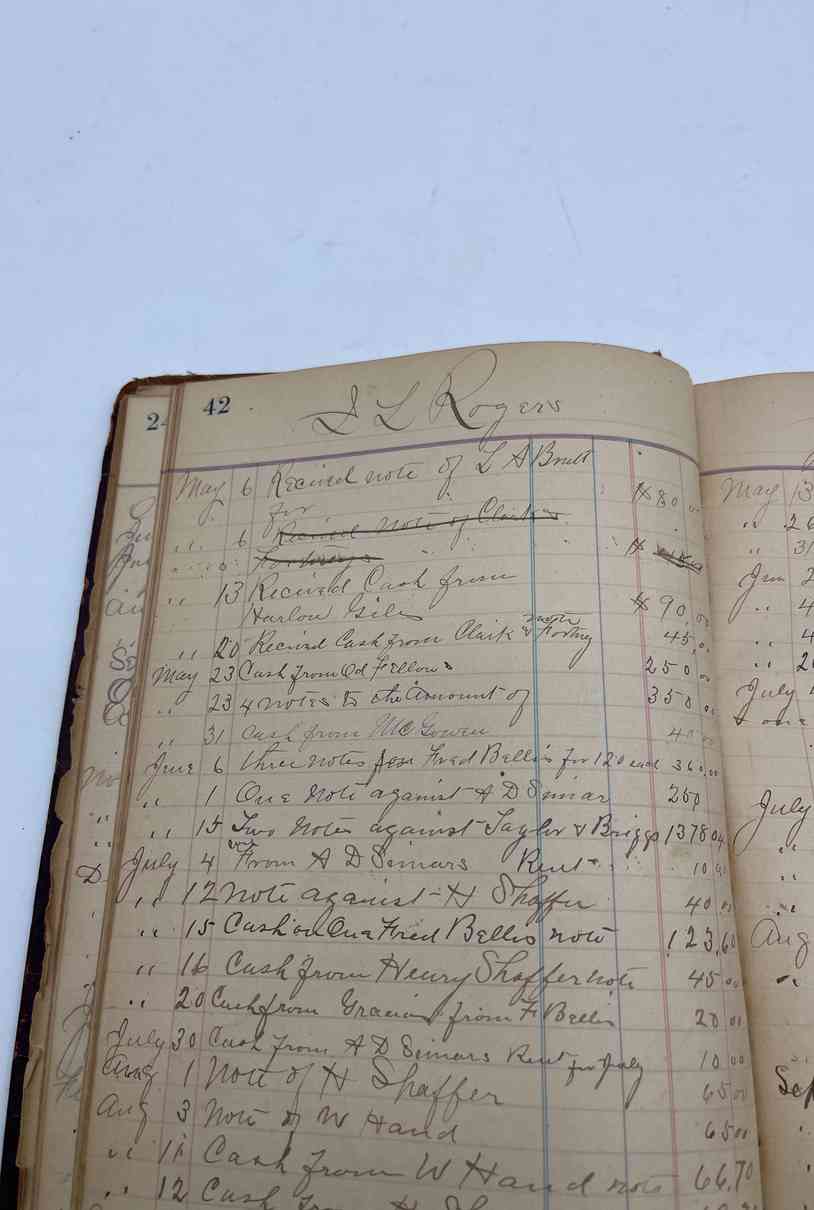 24
42
I L Rogers
May 6 Recived note of L A Brutt
for $80 00
,, 6 Recived Note of Clark
$
,, 13 Recived Cash from
Harlow Giles $90,00
,, 20 Recived Cash from Clark & Forting 45,00
May 23 Cash from Od Fellows 250 00
,, 23 4 notes to the Amount of 350 00
,, 31 Cash from McGowen 40 00
June 6 three notes Fred Bellis for 120 each 360,00
,, 1 One Note against A D Simar 250
,, 15 Two Notes against Taylor & Briggs 1378 04
July 4 From A D Simars Rent 10 00
,, 12 Note against H Shaffer 40 00
,, 15 Cash on One Fred Bellis note 123,60
,, 16 Cash from Henry Shaffer note 45 00
,, 20 Cash from from F Bellis 20 00
July 30 Cash from A D Simars Rent for July 10 00
Aug 1 Note of H Shaffer 65 00
Aug 3 Note of W Hand 65 00
,, 11 Cash from W Hand note 66,70
,, 12 Cash from H
May 13
,, 26
,, 31
Jun 2
,, 4
,, 4
,, 2
July 1
July
,,
,,
,,
Aug
,,
Sep